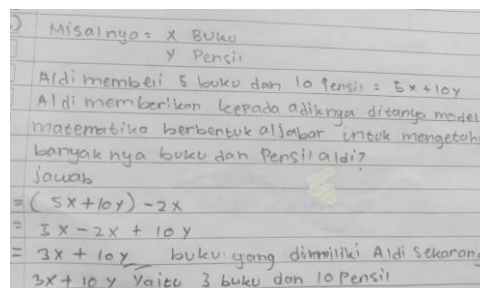 Misalnya = x Buku
y Pensil
Aldi membeli 5 buku dan 10 Pensil = 5x + 10y
Aldi memberikan kepada adiknya ditanya model
matematika berbentuk aljabar untuk mengetah
banyak nya buku dan Pensil aldi?
jawab
= (5x + 10y) - 2x
= 5x - 2x + 10y
= 3x + 10y buku yang dimiliki Aldi Sekarang
3x + 10y Yaitu 3 buku dan 10 Pensil